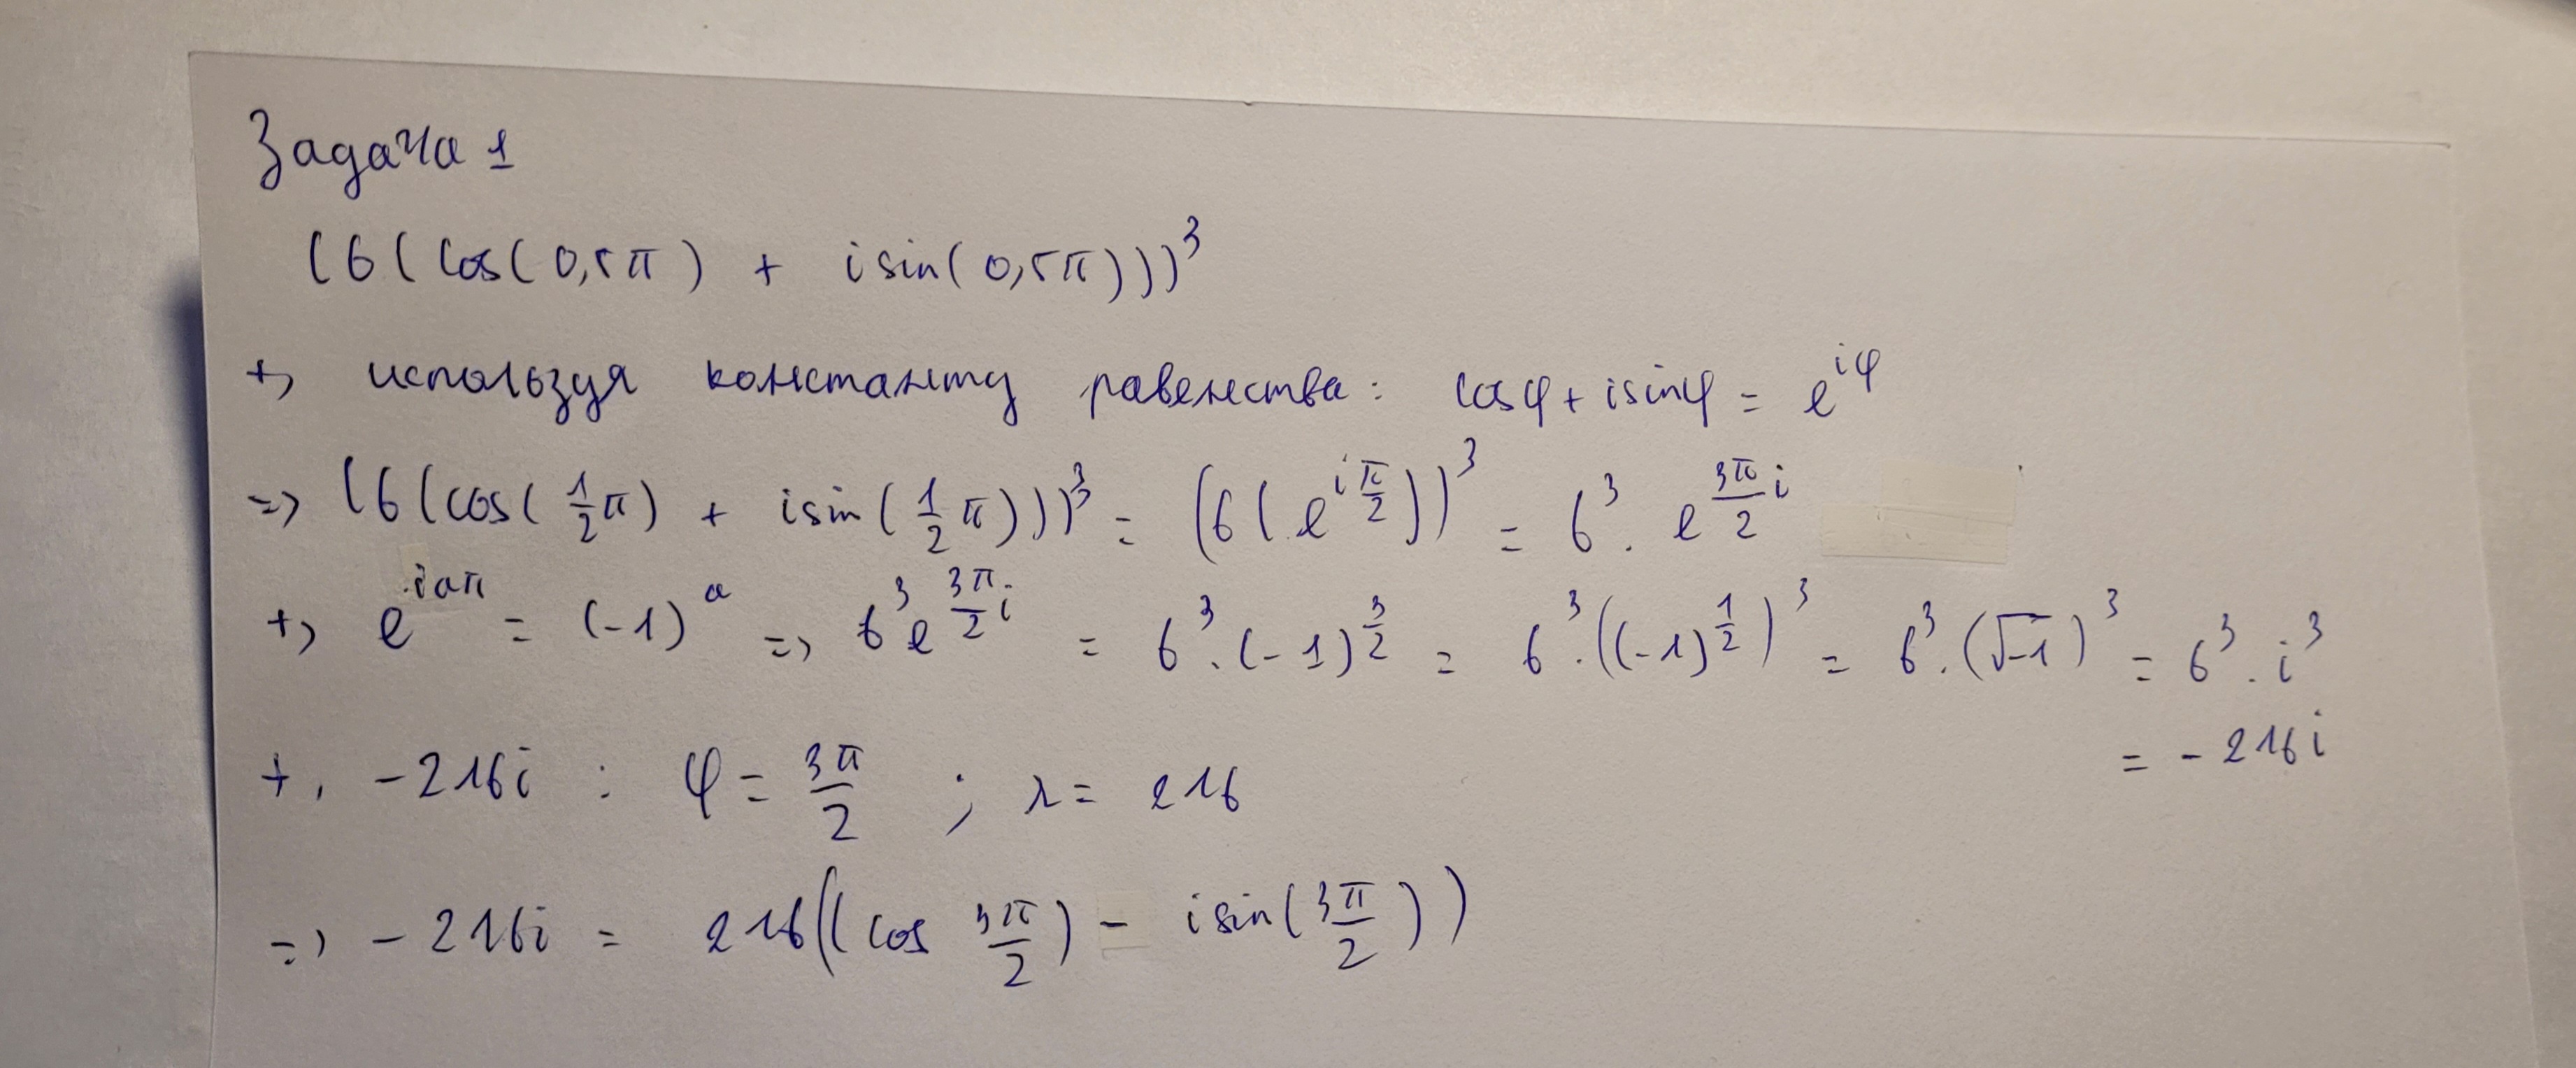 Задача 1
(6(cos(0,5π) + isin(0,5π)))³
+, используя константу равенства: cosφ + isinφ = e^{iφ}
=> (6(cos(\frac{1}{2}π) + isin(\frac{1}{2}π)))³ = (6(e^{i\frac{π}{2}}))³ = 6³ . e^{\frac{3π}{2}i}
+, e^{iaπ} = (-1)^a => 6³e^{\frac{3π}{2}i} = 6³.(-1)^{\frac{3}{2}} = 6³.((-1)^{\frac{1}{2}})³ = 6³.(√-1)³ = 6³.i³
= -216i
+, -216i : φ = \frac{3π}{2} ; r = 216
=> -216i = 216((cos \frac{3π}{2}) - isin(\frac{3π}{2}))